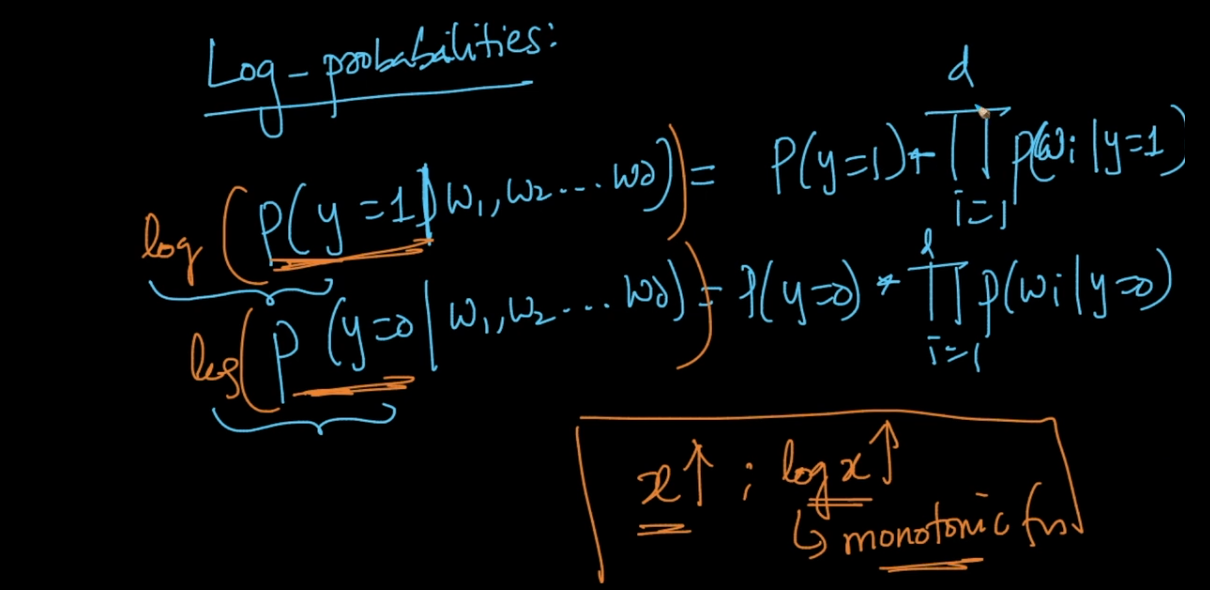 Log-probabilities:
log (P(y=1|w₁,w₂....w_d)) = P(y=1) * ∏_{i=1}^{d} p(w_i|y=1)
log (P(y=0|w₁,w₂....w_d)) = P(y=0) * ∏_{i=1}^{d} p(w_i|y=0)
x↑ ; log x↑
↳ monotonic fn